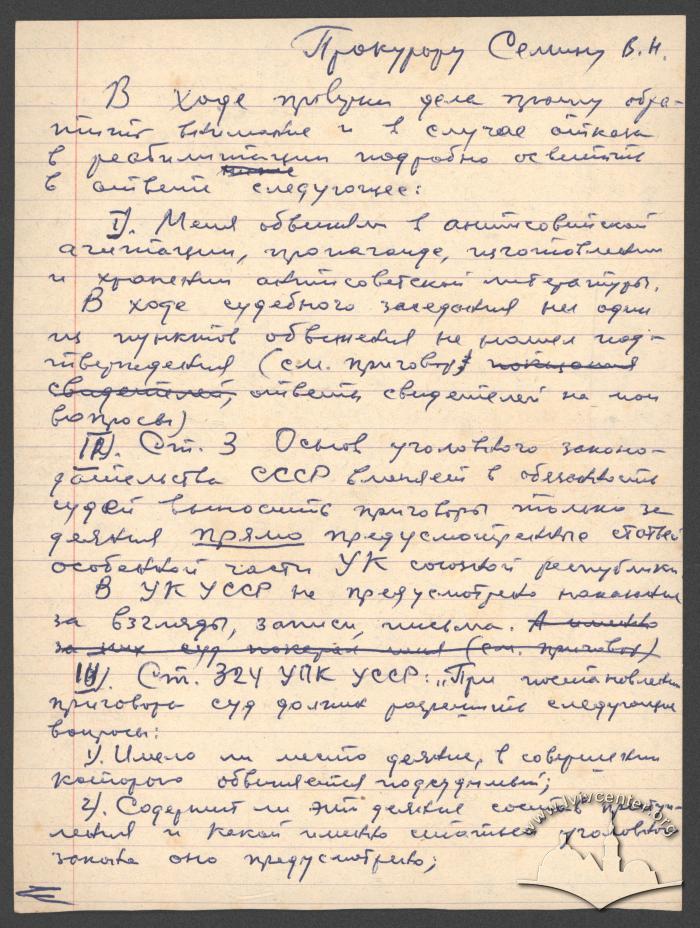 Прокурору Семину В.Н.
В ходе проверки дела прошу обра-
тить внимание и в случае отказа
в реабилитации подробно осветить
в ответе следующее:
I). Меня обвиняли в антисоветской
агитации, пропаганде, изготовлении
и хранении антисоветской литературы.
В ходе судебного заседания ни один
из пунктов обвинения не нашел под-
тверждения (см. приговор, показания
свидетелей, ответы свидетелей на мои
вопросы)
II). Ст. 3 Основ уголовного законо-
дательства СССР вменяет в обязанность
судей выносить приговоры только за
деяния прямо предусмотренные статьей
особенной части УК союзной республики
В УК УССР не предусмотрено наказание
за взгляды, записи, письма. А именно
за них суд покарал меня (см. приговор)
III). Ст. 324 УПК УССР: „При постановлении
приговора суд должен разрешить следующие
вопросы:
1). Имело ли место деяние, в совершении
которого обвиняется подсудимый;
2). Содержит ли это деяние состав преступ-
ления и какой именно статьей уголовного
закона оно предусмотрено;
www.lvivcenter.org